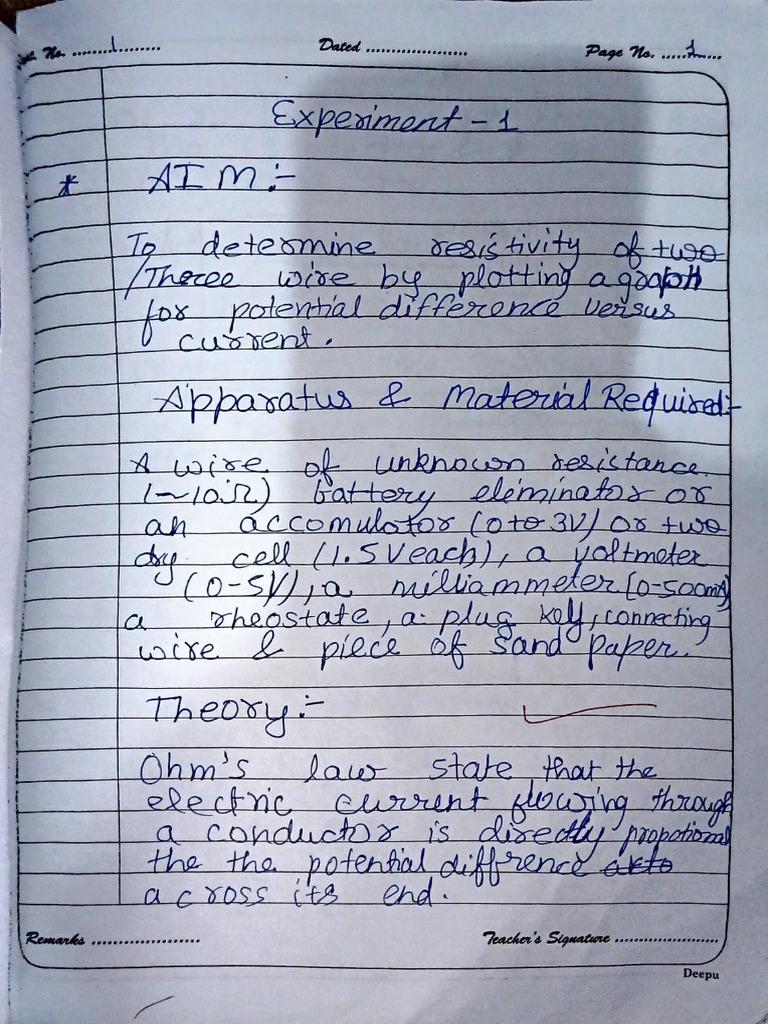 Expt. No. ........1......... Dated ..................... Page No. .....1......
Experiment - 1
* AIM :-
To determine resistivity of two
/Theree wire by plotting a graph
for potential difference versus
current.
Apparatus & Material Required:-
A wire of unknown resistance
(~10Ω) battery eleminator or
an accomulator (0 to 3V) or two
dry cell (1.5 V each), a voltmeter
(0-5V), a milliammeter (0-500mA)
a rheostate, a plug key, connecting
wire & piece of sand paper.
Theory :-
Ohm's law state that the
electric current flowing through
a conductor is directly propotional
the the potential diffrence
across its end.
Remarks ..................... Teacher's Signature .....................
Deepu